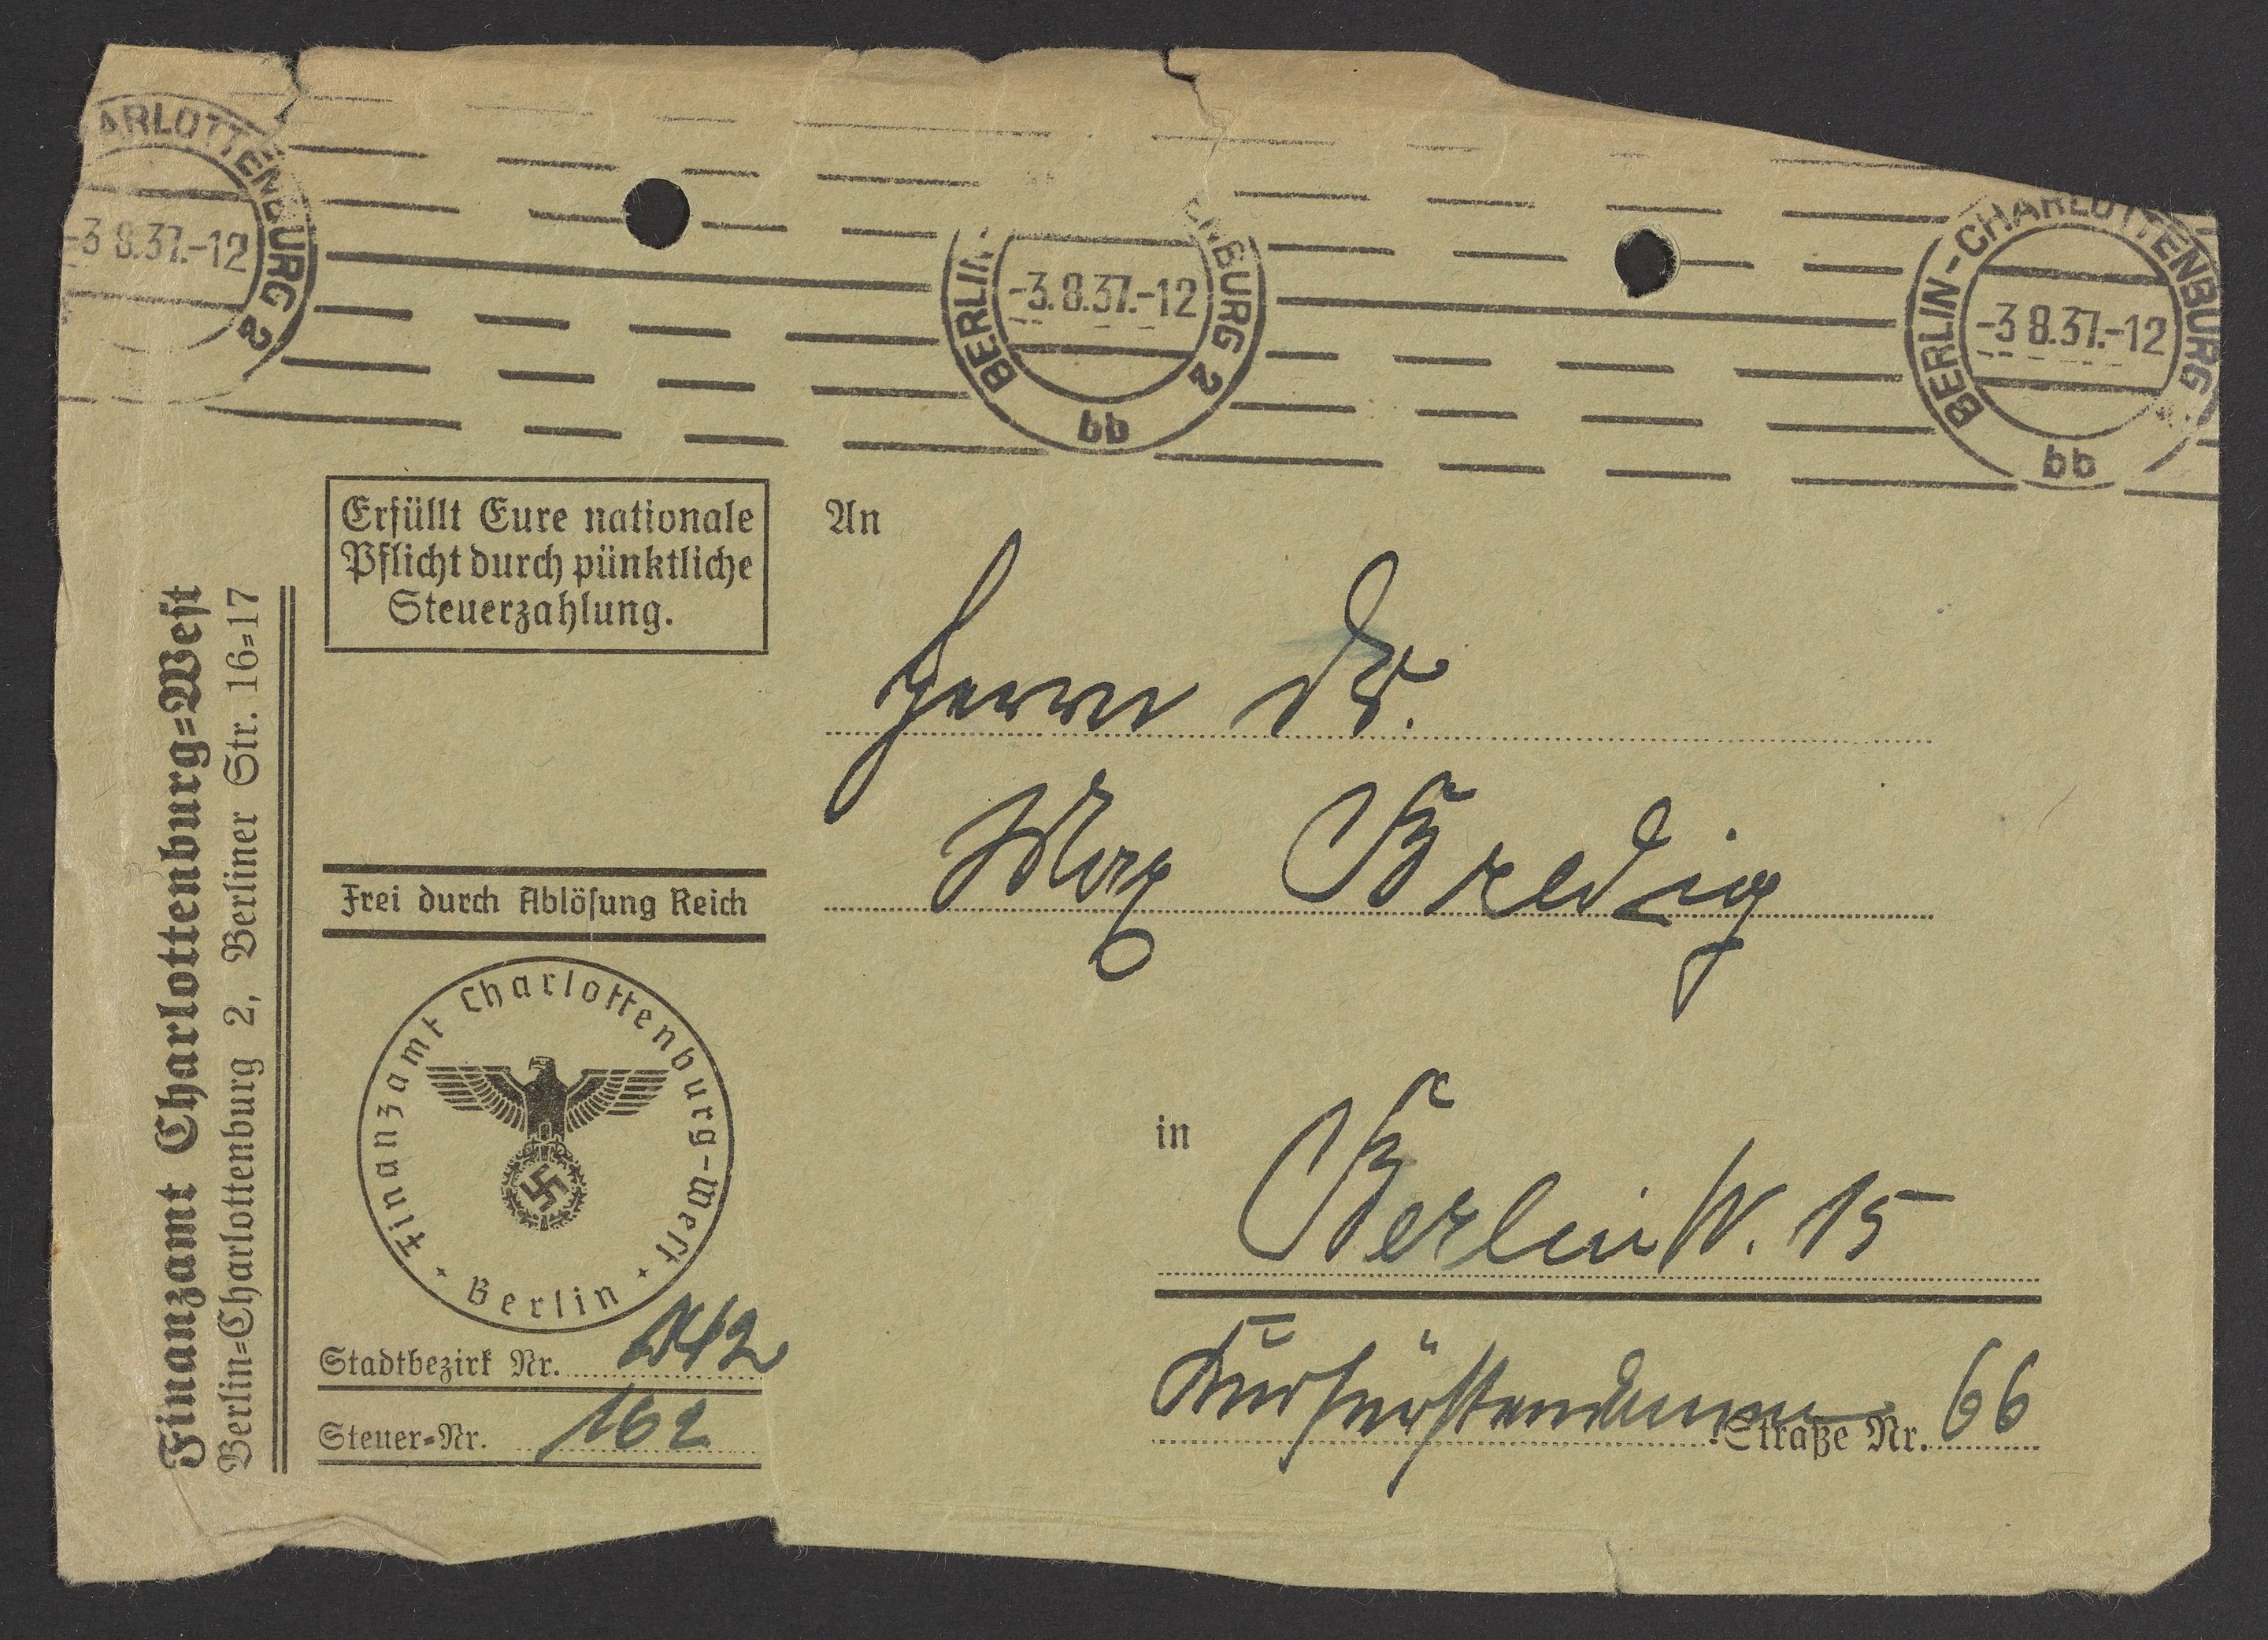 ARLOTTENBURG 2
-3 8.37.-12
BERLIN
ENBURG 2
-3.8.37.-12
bb
BERLIN-CHARLOTTENBURG
-3 8.37.-12
bb
Finanzamt Charlottenburg=West
Berlin=Charlottenburg 2, Berliner Str. 16=17
Erfüllt Eure nationale
Pflicht durch pünktliche
Steuerzahlung.
Frei durch Ablösung Reich
Finanzamt Charlottenburg-West
Berlin
Stadtbezirk Nr.
Steuer=Nr. 162
An
Herrn Dr.
Max Bredig
in
Berlin W. 15
Kurfürstendamm Straße Nr. 66